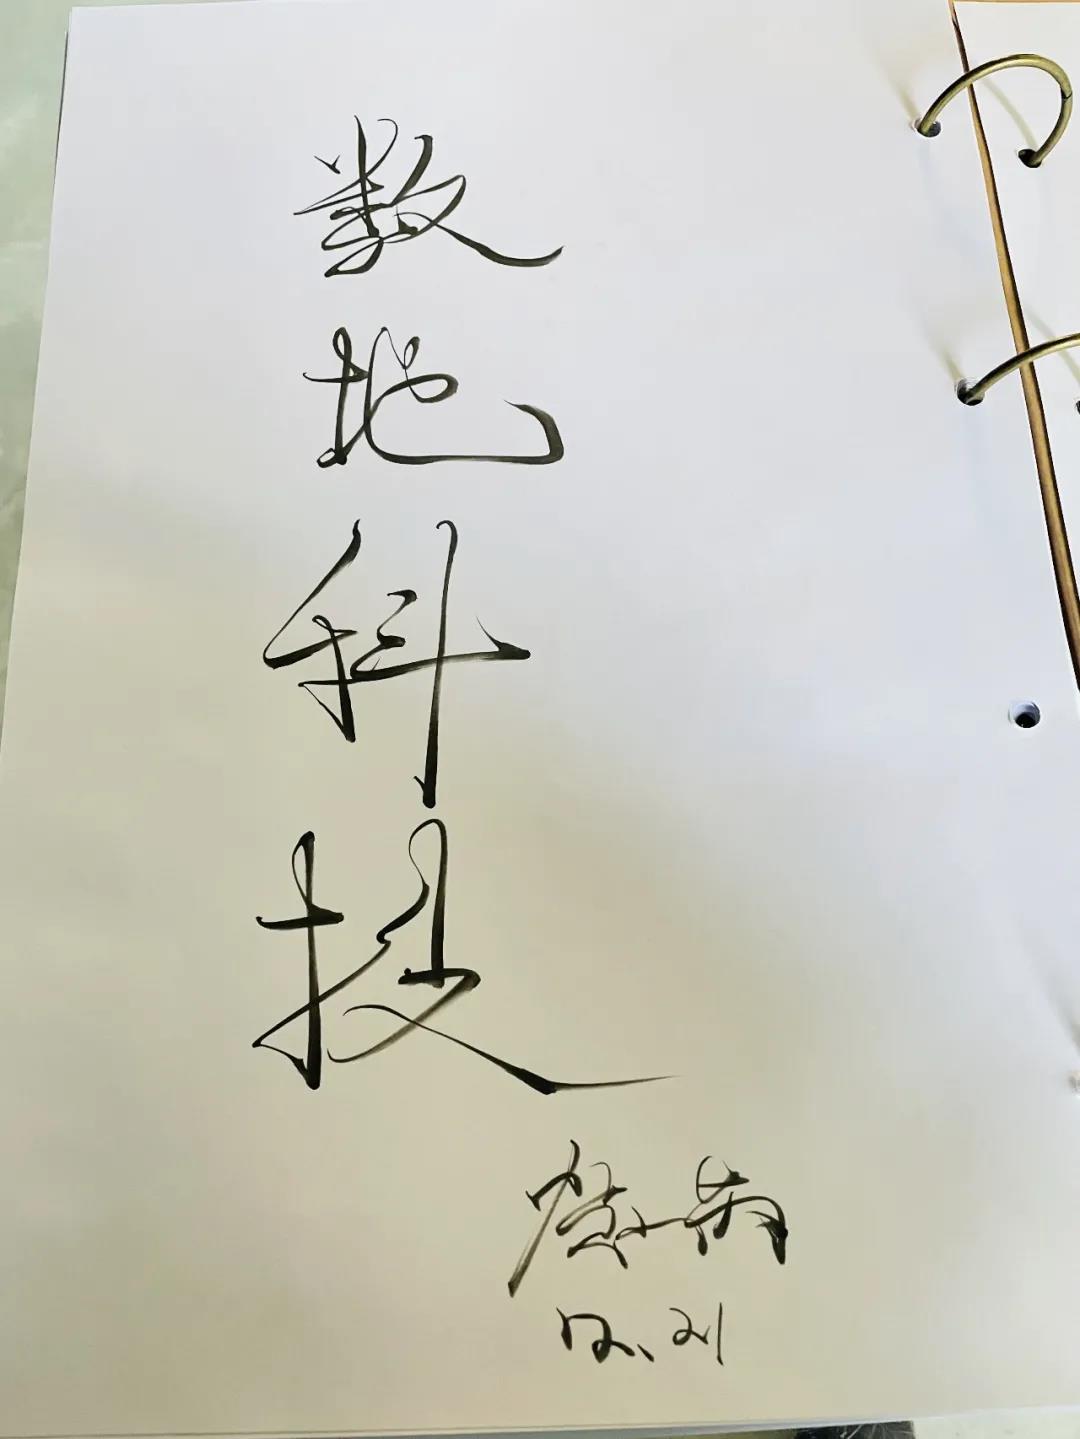 数
地
科
技
12、21